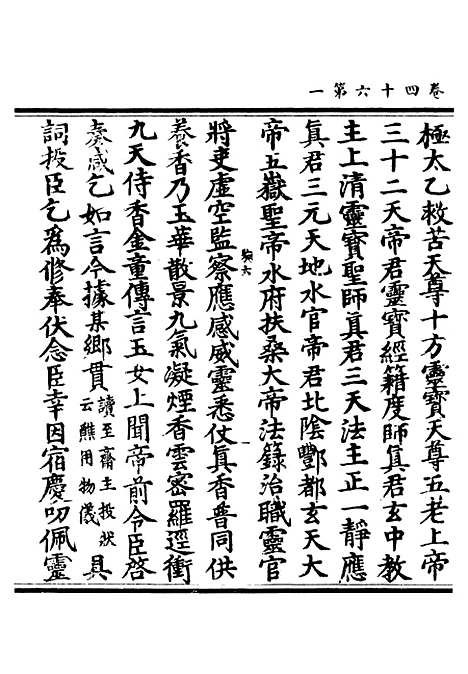 卷四十六第一
極太乙救苦天尊十方靈寶天尊五老上帝
三十二天帝君靈寶經籍度師眞君玄中教
主上清靈寶聖師眞君三天法主正一靜應
眞君三元天地水官帝君北陰酆都玄天大
帝五嶽聖帝水府扶桑大帝法籙治職靈官
將吏虛空監察應感威靈悉仗眞香普同供
養香乃玉華散景九氣凝煙香雲密羅逕衝
九天侍香金童傳言玉女上聞帝前令臣啓
奏咸乞如言今據某鄉貫讀至齋主投狀云熊用物儀具
詞投臣乞爲修奉伏念臣幸因宿慶叨佩靈